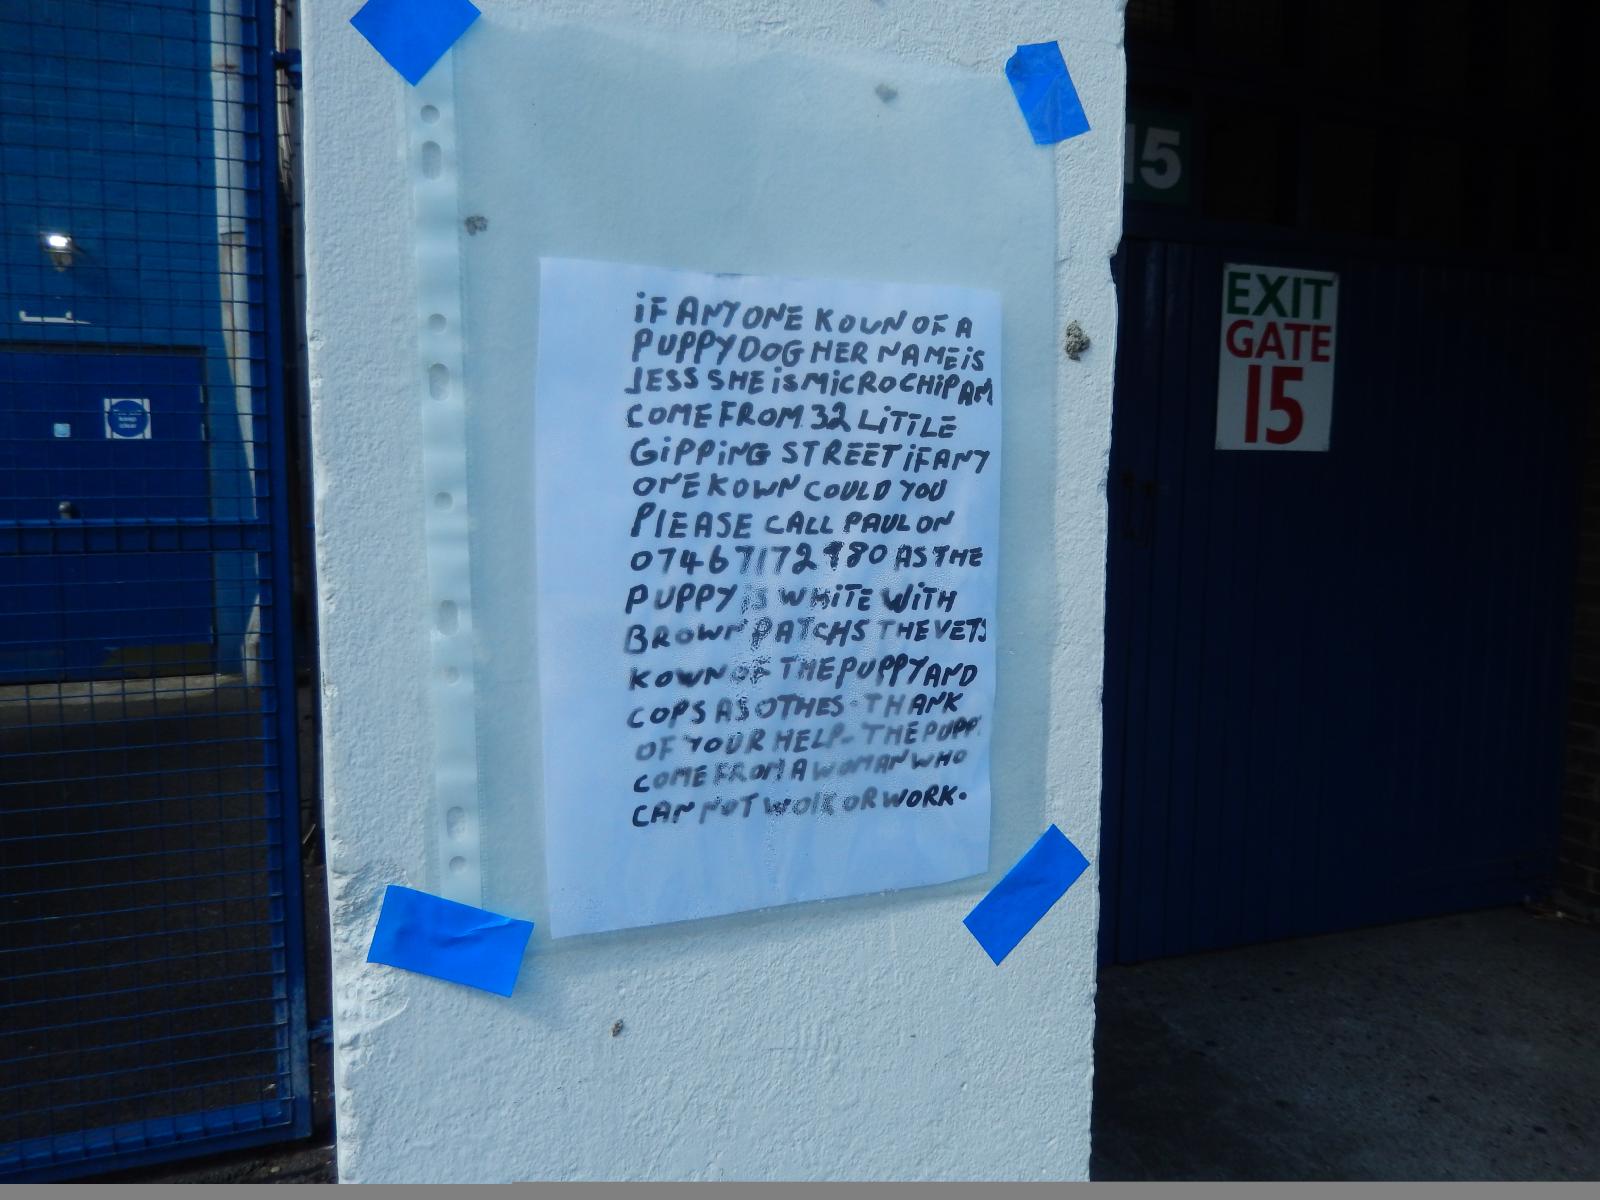 iF ANYONE KOWN OF A
PUPPY DOG HER NAME iS
JESS SHE iS MiCROCHiP AM
COME FROM 32 LiTTLE
GiPPiNG STREET iF ANY
ONE KOWN COULD YOU
PlEASE CALL PAUL ON
07467172980 AS THE
PUPPY iS WHiTE WiTH
BROWN PATCHS THE VETS
KOWN OF THE PUPPY AND
COPS AS OTHES. THANK
OF YOUR HELP- THE PUPP
COME FROM A WOMAN WHO
CAN NOT OR WORK.
15
EXIT
GATE
15